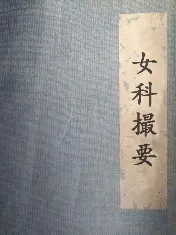 女科撮要